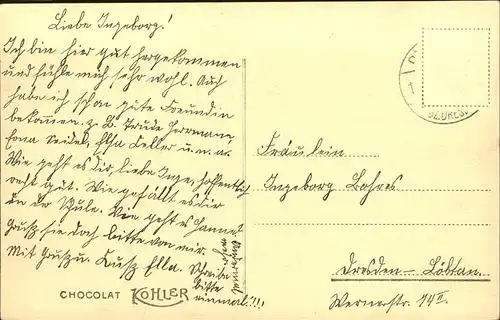 Liebe Ingeborg!
Ich bin hier gut hergekommen
und fühle mich sehr wohl. Auch
habe ich schon gute Freundin
bekommen. z. B. Trude Herrmann,
Erna Seidel, Ella Keller u.n.a.
Wie geht es dir, liebe Inge, hoffentlich
recht gut. Wie gefällt es dir
in der Schule. Wie geht es Hanne?
Grüß sie doch bitte von mir.
Mit Gruß u. Kuß Ella.
Schreibe
bitte
einmal!!!
CHOCOLAT KOHLER
Fräulein
Ingeborg Bohres
Dresden – Löbtau
Wernerstr. 14 II